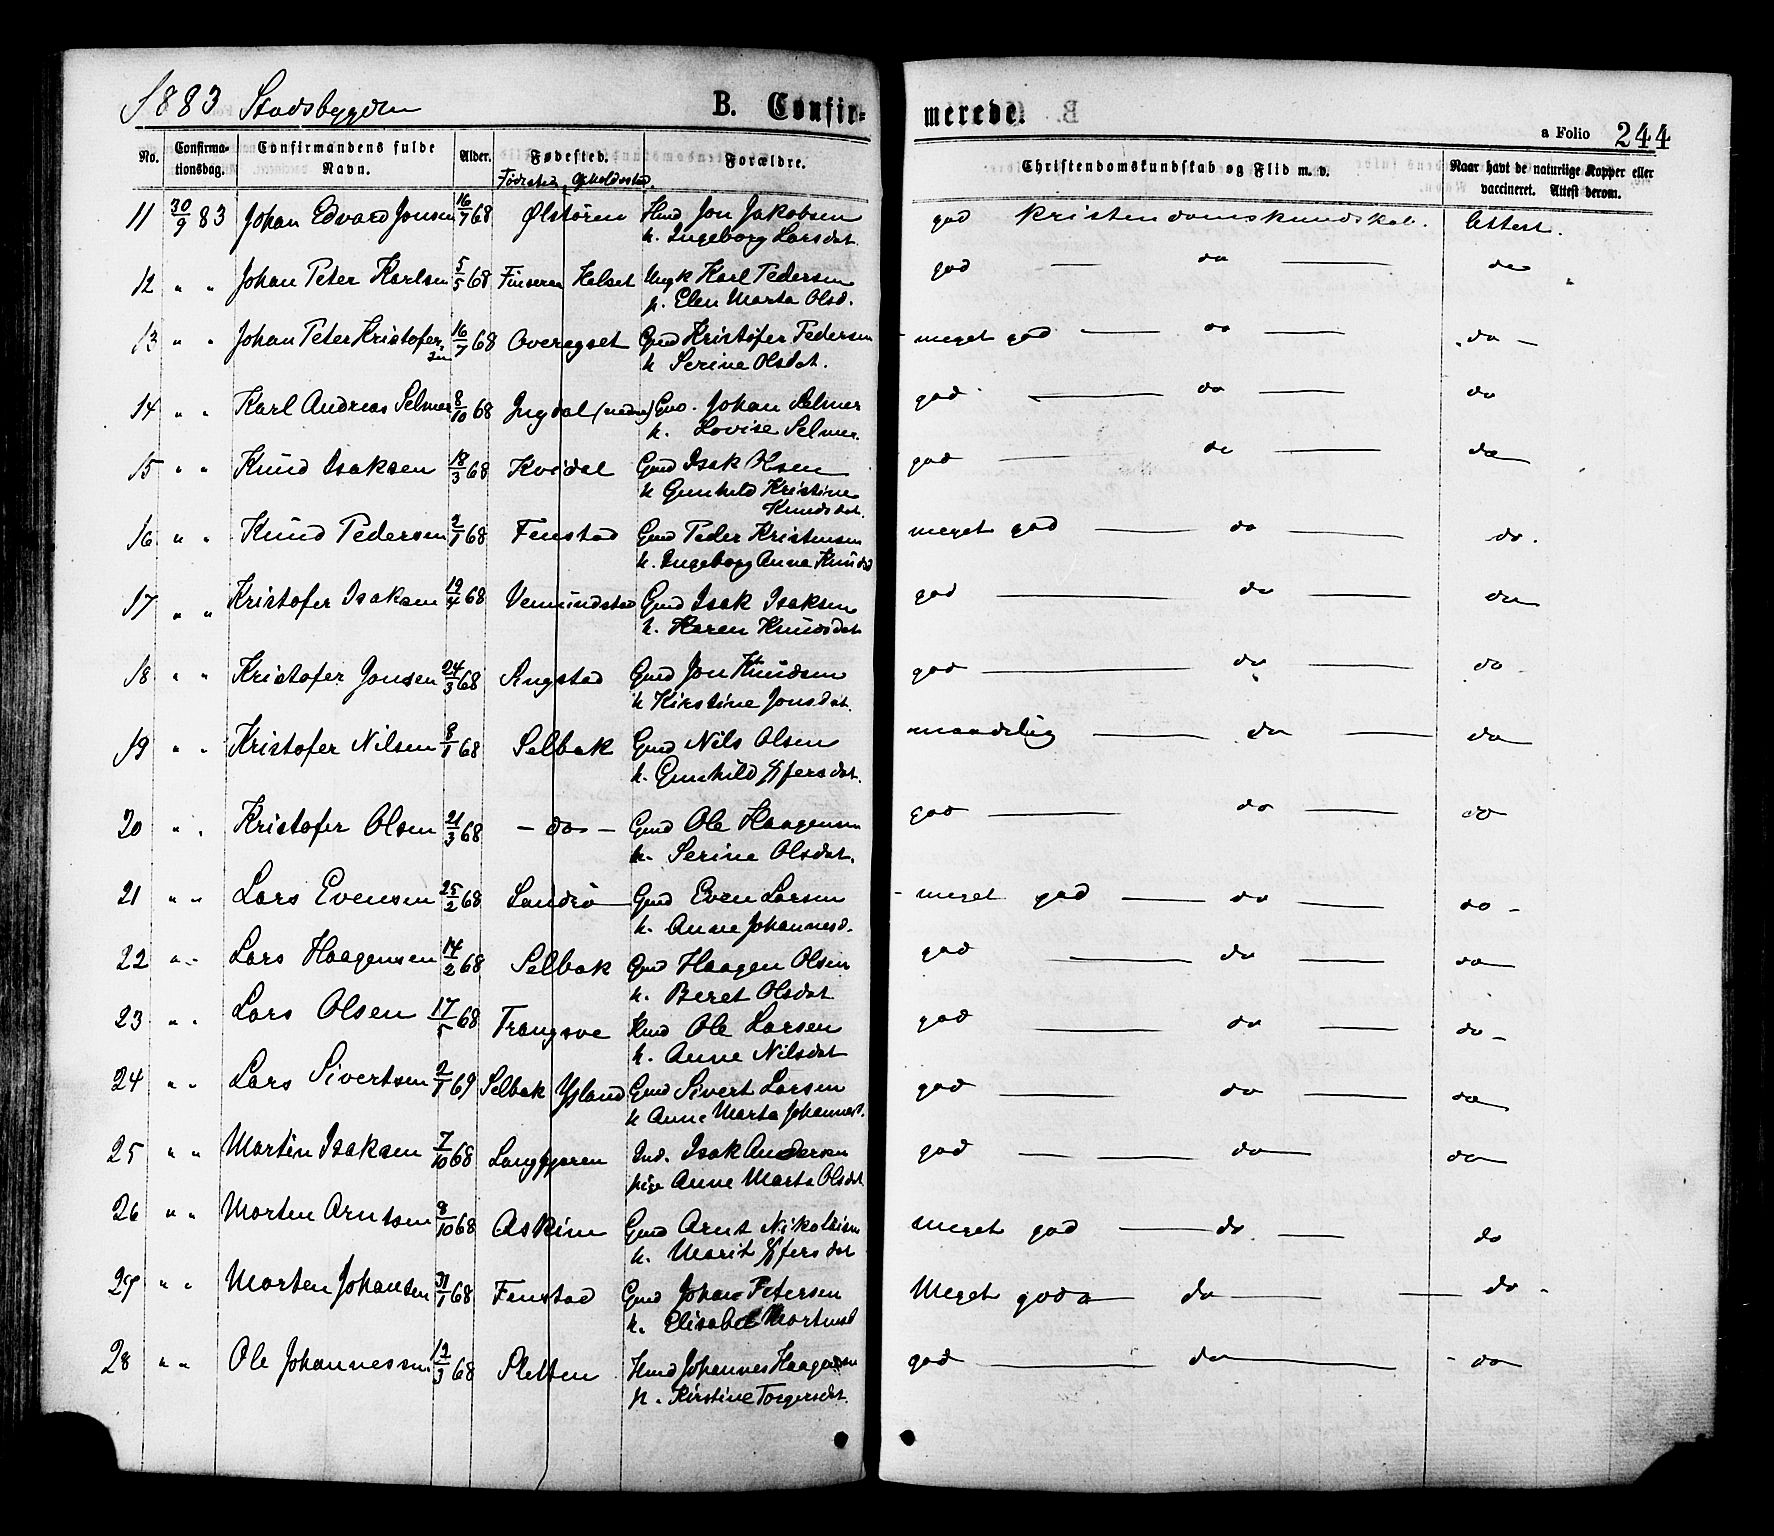 1883 Stadsbygden
B. Confirmerede.
a Folio 244
No. Confirmationsdag. Confirmandens fulde Navn. Alder. Fødested. Forældre. Christendomskundskab og Flid m. v. Naar havt de naturlige Kopper eller vaccineret. Attest derom.
Fødested, Opholdssted.
11 30/9 83 Johan Edvard Jonsen 16/7 68 Ølstøren Hmd Jon Jakobsen god Kristendomskundskab. Attest.
h. Ingeborg Larsdat.
12 " " Johan Peter Karlsen 5/5 68 Finseren Halset Ungk Karl Pedersen god — do — do "
p. Elen Marta Olsd.
13 " " Johan Peter Kristofersen 16/7 68 Overegset Gmd Kristofer Pedersen meget god — do — do —
h Serine Olsdat.
14 " " Karl Andreas Selmer 8/10 68 Ingdal (nedre) Gmd. Johan Selmer god — do — do
h. Lovise Selmer.
15 " " Knud Isaksen 18/3 68 Kvidal Gmd Isak Olsen god — do — do
h Gunhild Kristine
Knudsdat.
16 " " Knud Pedersen 2/1 68 Fenstad Gmd Peder Kristensen meget god — do — do.
h. Ingeborg Anna Knudsd
17 " " Kristofer Isaksen 19/4 68 Vemundstad Gmd Isak Isaksen god — do — do
h. Karen Knudsdat
18 " " Kristofer Jonsen 24/3 68 Ringstad Gmd Jon Knudsen god — do — do
h Kirstine Jonsdat.
19 " " Kristofer Nilsen 8/1 68 Selbak Gmd Nils Olsen maadelig — do — do
h. Gunhild Effersdat.
20 " " Kristofer Olsen 21/3 68 — do — Gmd Ole Haagensen god — do — do
h. Serine Olsdat.
21 " " Lars Evensen 25/2 68 Sandrø Gmd Even Larsen meget god — do — do —
h. Anne Johannesd.
22 " " Lars Haagensen 14/2 68 Selbak Gmd Haagen Olsen god — do — do
h. Beret Olsdat
23 " " Lars Olsen 17/5 68 Trangsve Hmd Ole Larsen god — do — do —
h. Anne Nilsdat
24 " " Lars Sivertsen 2/1 69 Selbak Ysland Gmd Sivert Larsen god — do — do
h Anne Marta Johannesd.
25 " " Martin Isaksen 7/10 68 Ind. Isak Andersen god — do — do
pige Anne Marta Olsdat
26 " " Morten Arntsen 8/10 68 Askim Gmd Arnt Nikolaisen meget god — do. — do
h. Marit Effersdat
27 " " Morten Johansen 31/1 68 Fenstad Gmd Johan Petersen Meget god — do — do —
h. Elisabet Mortensd
28 " " Ole Johannessen 12/3 68 Sletten Hmd Johannes Haagensen god — do — do
h. Kirstine Torgersdat.